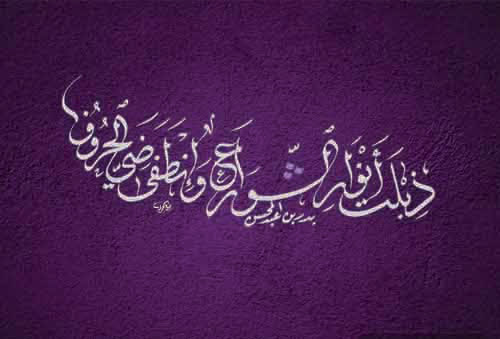 ذبلت أنوار الشوارع وانطفى ضي الحروف
بدر بن عبدالمحسن